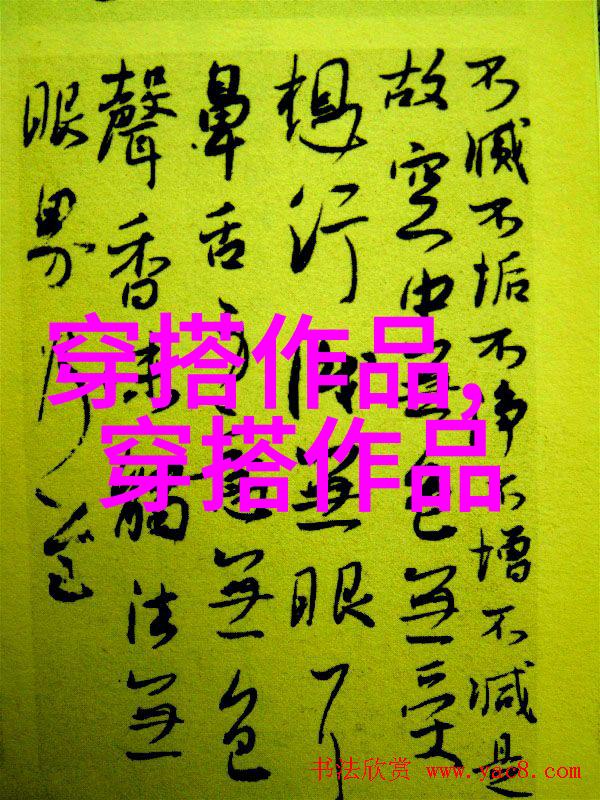 不滅不垢不净不增不減是
故空中無色無受
想行識無眼耳
鼻舌身意無色
聲香味觸法無
眼界乃
穿搭作品,
穿搭作品
书法欣赏 www.yac8.com